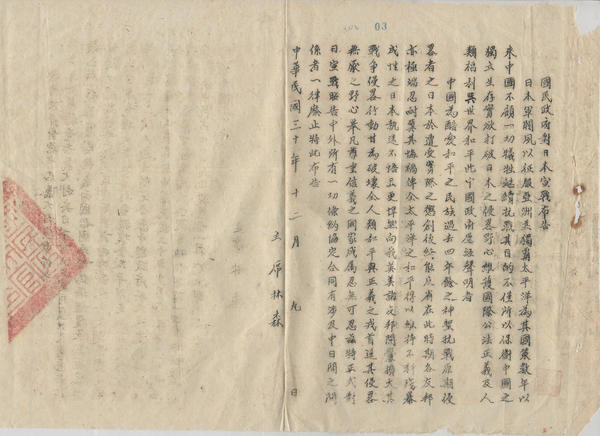 03
國民政府對日本宣戰布告
日本軍閥夙以征服亞洲並獨霸太平洋為其國策數年以
來中國不顧一切犧牲繼續抗戰其目的不僅所以保衛中國之
獨立生存實欲打破日本之侵畧野心維護國際公法正義及人
類福利與世界和平此中國政府屢經聲明者
中國為酷愛和平之民族過去四年餘之神聖抗戰原期侵
畧者之日本於遭受實際之懲創後終能反省在此時期各友邦
亦極端忍耐冀其悔禍俾全太平洋之和平得以維持不料殘暴
成性之日本執迷不悟且更悍然向我英美諸友邦開釁擴大其
戰爭侵畧行動甘為破壞全人類和平與正義之戎首逞其侵畧
無厭之野心舉凡尊重信義之國家咸屬忍無可忍茲特正式對
日宣戰昭告中外所有一切條約協定合同有涉及中日間之關
係者一律廢止特此布告
中華民國三十年十二月九日
主席林森